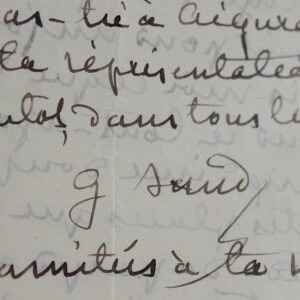 as-tu à aigura
ta représentatio
dans tous le
G Sand
amitiés à ta